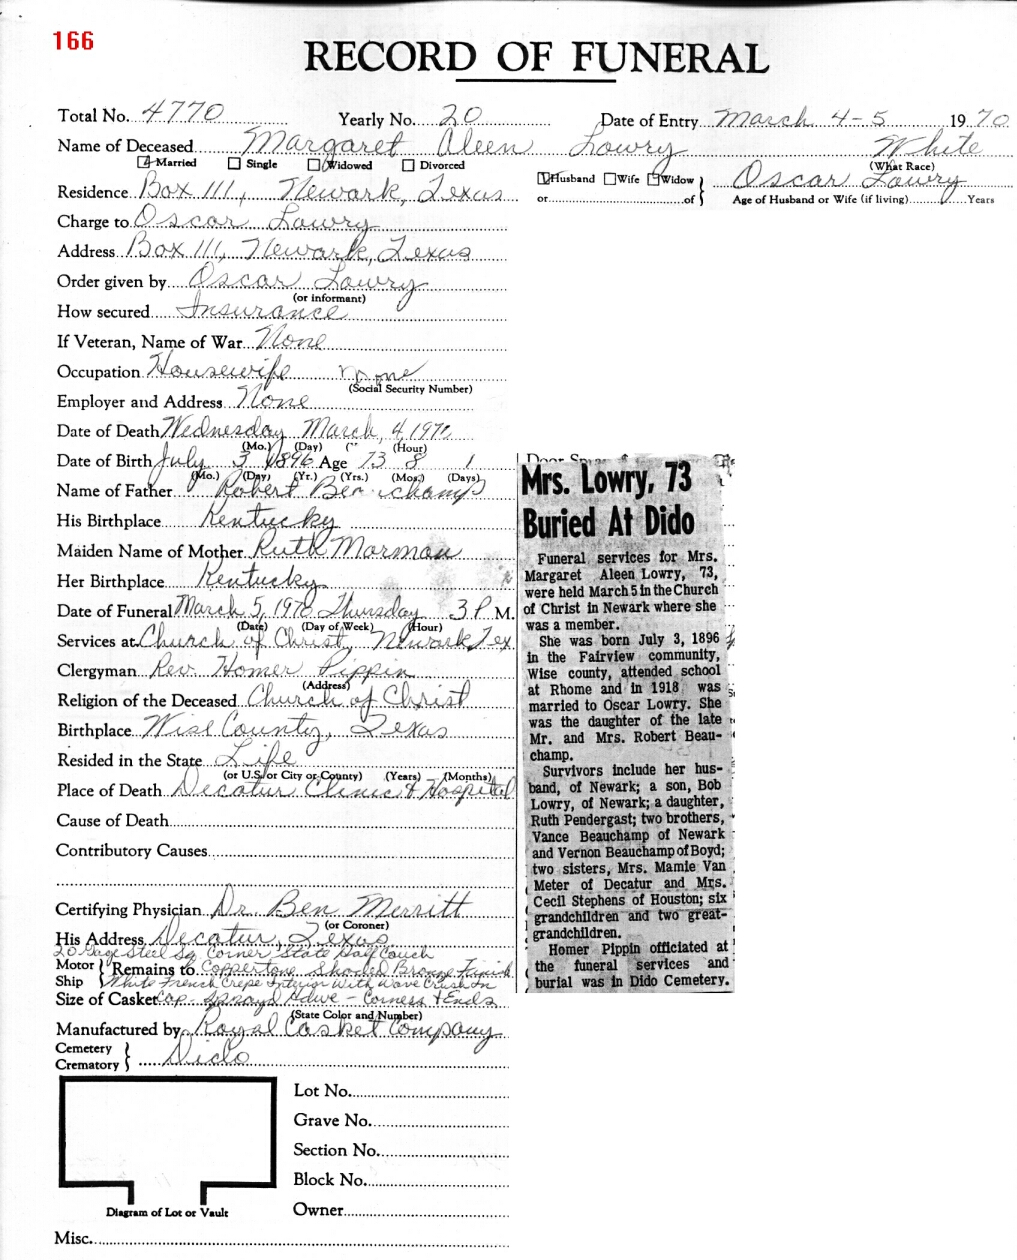 166
RECORD OF FUNERAL
Total No. 4770 Yearly No. 20 Date of Entry March 4-5 1970
Name of Deceased Margaret Aleen Lowry White
Married Single Widowed Divorced (What Race)
Husband Wife Widow Oscar Lowry
Residence Box 111, Newark, Texas or of Age of Husband or Wife (if living) Years
Charge to Oscar Lowry
Address Box 111, Newark, Texas
Order given by Oscar Lowry
(or informant)
How secured Insurance
If Veteran, Name of War None
Occupation Housewife None
(Social Security Number)
Employer and Address None
Date of Death Wednesday March, 4, 1970
(Mo.) (Day) (Hour)
Date of Birth July 3 1896 Age 73 8 1
(Mo.) (Day) (Yr.) (Yrs.) (Mos.) (Days)
Name of Father Robert Beauchamp
His Birthplace Kentucky
Maiden Name of Mother Ruth Morman
Her Birthplace Kentucky
Date of Funeral March 5, 1970 Thursday 3 P M.
(Date) (Day of Week) (Hour)
Services at Church of Christ, Newark Tex
Clergyman Rev. Homer Pippin
(Address)
Religion of the Deceased Church of Christ
Birthplace Wise County, Texas
Resided in the State Life
(or U.S. or City or County) (Years) (Months)
Place of Death Decatur Clinic & Hospital
Cause of Death
Contributory Causes
Certifying Physician Dr. Ben Merritt
(or Coroner)
His Address Decatur, Texas
20 Gage Steel Sq. Corner State Half Couch
Motor Remains to Coppertone Shaded Bronze Finish
Ship White French Crepe Interior with Wave Crush In
Size of Casket Cap. - Corners & Ends
(State Color and Number)
Manufactured by Royal Casket Company
Cemetery
Crematory Dido
Lot No.
Grave No.
Section No.
Block No.
Owner
Diagram of Lot or Vault
Misc.
Mrs. Lowry, 73
Buried At Dido
Funeral services for Mrs.
Margaret Aleen Lowry, 73,
were held March 5 in the Church
of Christ in Newark where she
was a member.
She was born July 3, 1896
in the Fairview community,
Wise county, attended school
at Rhome and in 1918 was
married to Oscar Lowry. She
was the daughter of the late
Mr. and Mrs. Robert Beau-
champ.
Survivors include her hus-
band, of Newark; a son, Bob
Lowry, of Newark; a daughter,
Ruth Pendergast; two brothers,
Vance Beauchamp of Newark
and Vernon Beauchamp of Boyd;
two sisters, Mrs. Mamie Van
Meter of Decatur and Mrs.
Cecil Stephens of Houston; six
grandchildren and two great-
grandchildren.
Homer Pippin officiated at
the funeral services and
burial was in Dido Cemetery.